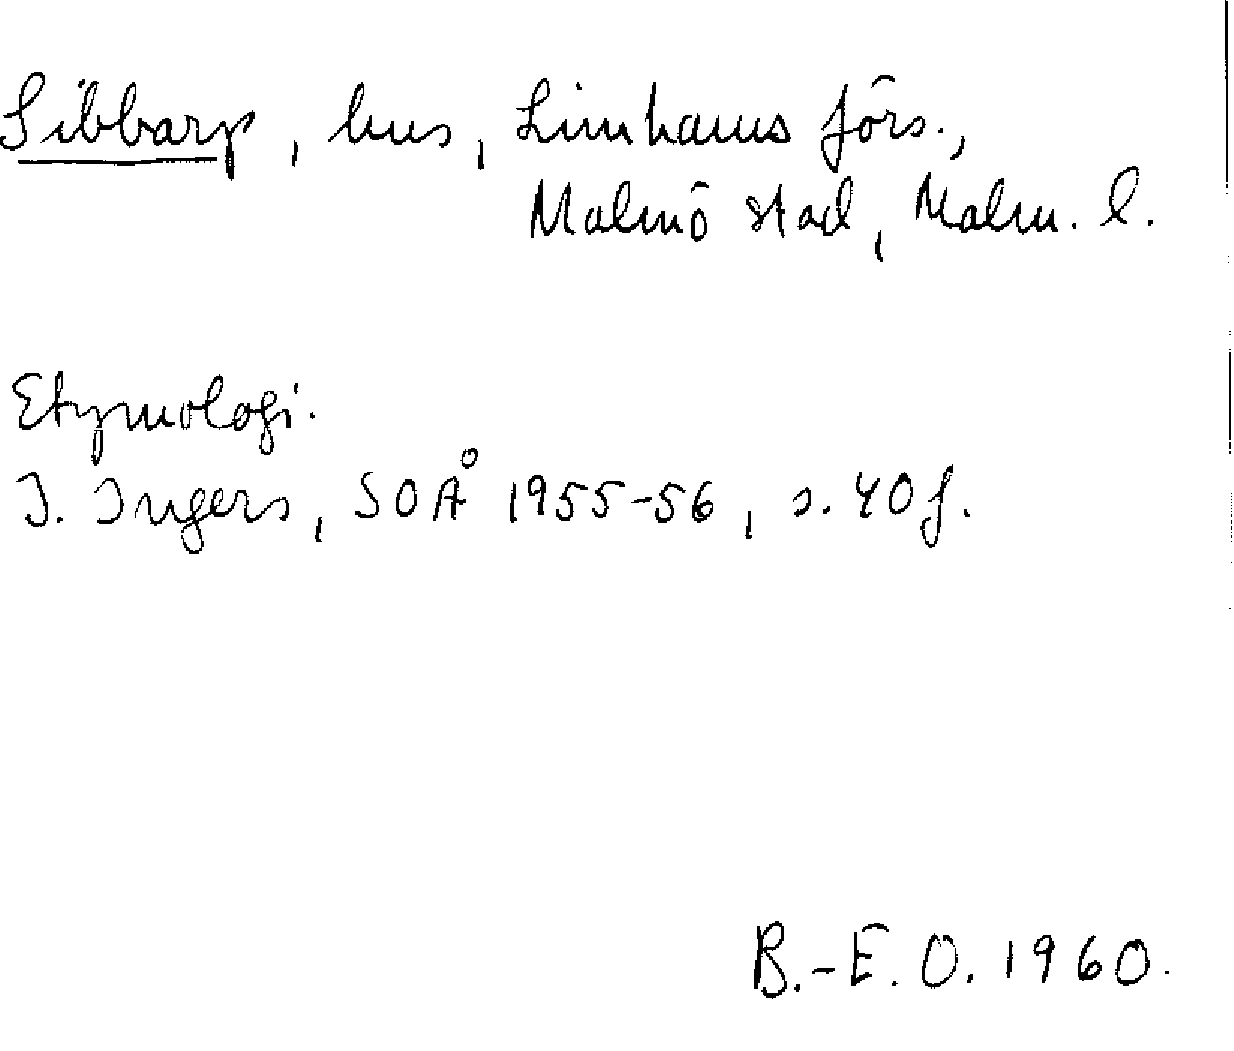 Sibbarp, hus, Limhamns förs.,
Malmö stad, Malm. l.
Etymologi.
I. Ingers, SOÅ 1955-56, s. 40 f.
B.-E. O. 1960.